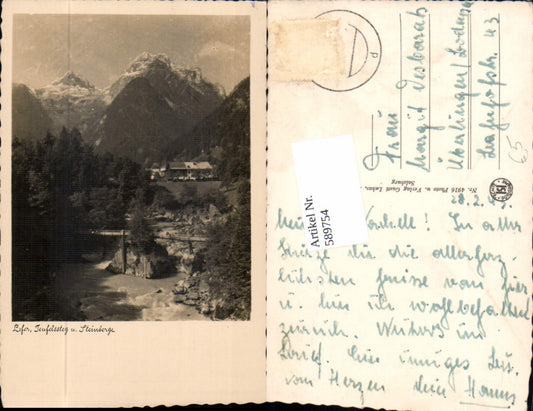 Lofer, Teufelssteg u. Steinberge
Artikel Nr.
589754
Frau
Margit Desbarats
Überlingen/Bodensee
Bahnhofstr. 43
Nr. 4916 Photo u. Verlag Gustl
Salzburg
28.2.
! In aller
Kürze dir die allerherz-
lichsten Grüsse von hier
u. bin ich wohlbehalten
zurück. Weiteres im
Brief. Sei inniges
von Herzen dein Hanns